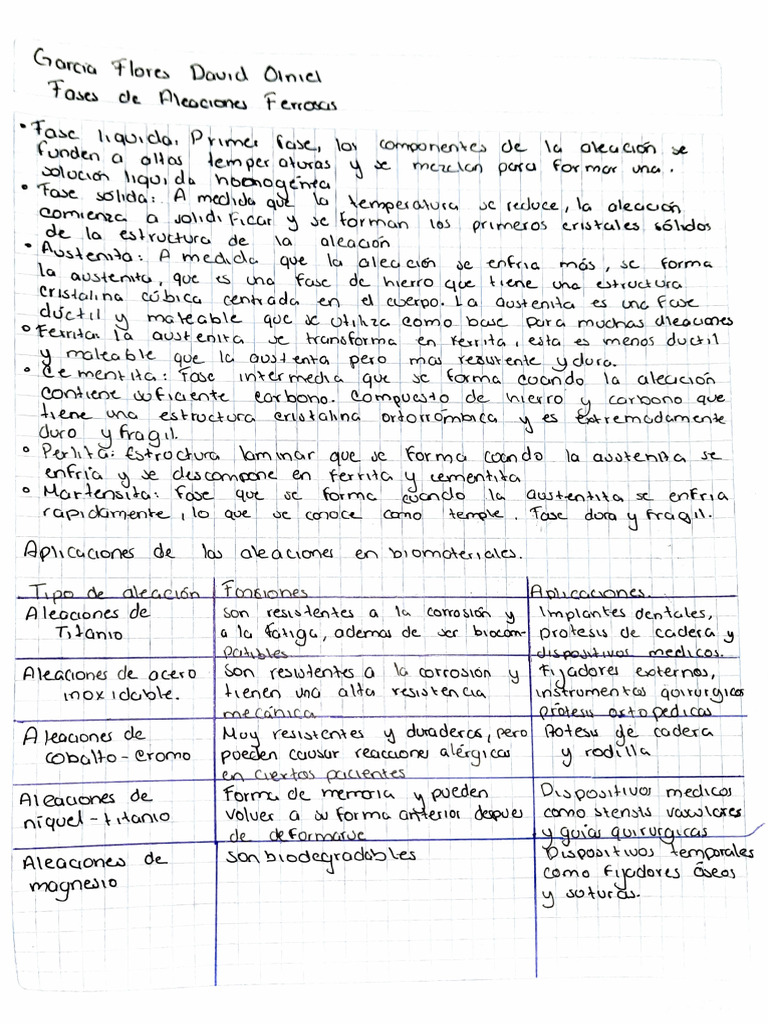 García Flores David Olniel
Fases de Aleaciones Ferrosas
• Fase liquida. Primer fase, los componentes de la aleación se
funden a altas temperaturas y se mezclan para formar una.
solución liquida homogénea
• Fase sólida: A medida que la temperatura se reduce, la aleación
comienza a solidificar y se forman los primeros cristales sólidos
de la estructura de la aleación
• Austenita: A medida que la aleación se enfria más, se forma
la austenita, que es una fase de hierro que tiene una estructura
cristalina cúbica centrada en el cuerpo. La austenita es una fase
dúctil y maleable que se utiliza como base para muchas aleaciones
• Ferrita: la austenita se transforma en ferrita, esta es menos ductil
y maleable que la austenta pero mas resistente y dura.
• Cementita: Fase intermedia que se forma cuando la aleación
contiene suficiente carbono. Compuesto de hierro y carbono que
tiene una estructura cristalina ortorrómbica y es extremadamente
duro y fragil.
• Perlita: Estructura laminar que se forma cuando la austenita se
enfría y se descompone en ferrita y cementita
• Martensita: Fase que se forma cuando la austentita se enfria
rapidamente, lo que se conoce como temple. Fase dura y fragil.
Aplicaciones de las aleaciones en biomateriales.
Tipo de aleación Funsiones Aplicaciones.
Aleaciones de son resistentes a la corrosión y Implantes dentales,
Titanio a la fatiga, ademas de ser biocom protesis de cadera y
patibles dispositivos medicos.
Aleaciones de acero son resistentes a la corrosión y Fijadores externos,
inoxidable. tienen una alta resistencia instrumentos quirurgicos
mecánica prótesis ortopedicas
Aleaciones de Muy resistentes y duraderas, pero Protesis de cadera
cobalto-cromo pueden causar reacciones alérgicas y rodilla
en ciertos pacientes
Aleaciones de Forma de memoria y pueden Dispositivos medicos
niquel-titanio volver a su forma anterior despues como stensis vasculares
de deformarse y guias quirurgicas
Aleaciones de son biodegradables Dispositivos temporales
magnesio como fijadores óseos
y suturas.